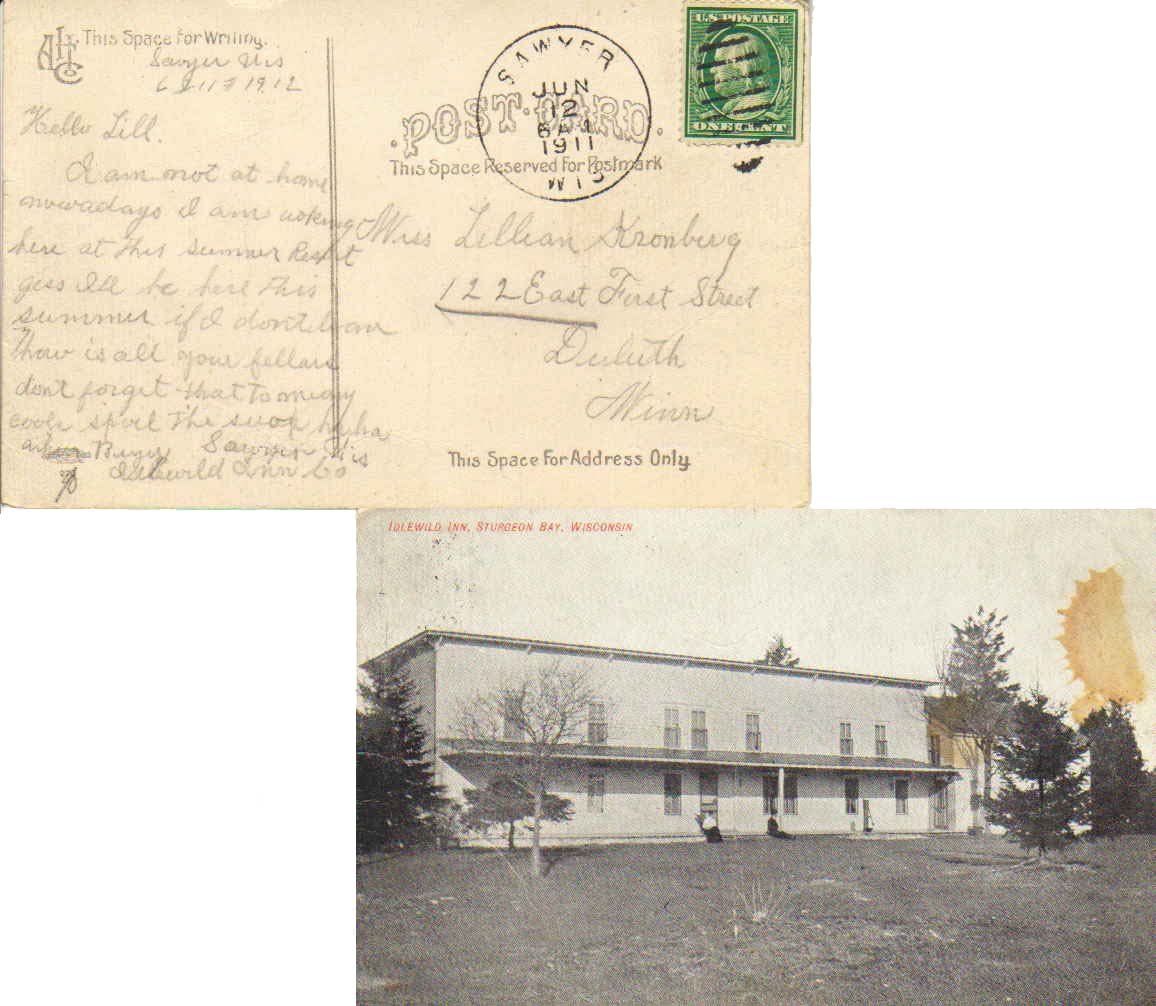 This Space For Writing.
Sawyer Wis
6 1912
Hello Lill.
I am not at home
nowadays I am woking
here at this summer Resort
gess Ill be here this
summer if I dont
how is all your fellars
dont forget that to meny
cooks spoil the soop haha
Sawyer Wis
Idlewild Inn Co
POST CARD.
This Space Reserved For Postmark
SAWYER
JUN
12
1911
WIS
U.S. POSTAGE
ONE CENT
Miss Lillian Kronberg
122 East First Street
Duluth
Minn
This Space For Address Only
IDLEWILD INN, STURGEON BAY, WISCONSIN